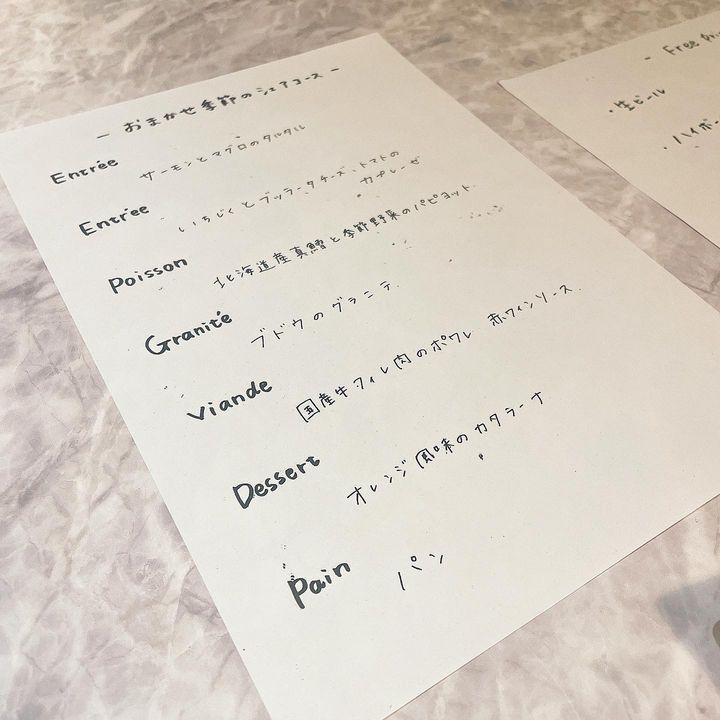 - おまかせ季節のシェアコース -
Entrée サーモンとマグロのタルタル
Entrée いちじくとブッラータチーズ、トマトの
カプレーゼ
Poisson 北海道産真鱈と季節野菜のパピヨット
Granité ブドウのグラニテ.
Viande 国産牛フィレ肉のポワレ 赤ワインソース.
Dessert オレンジ風味のカタラーナ
Pain パン
- Free
・生ビール
・ハイボー